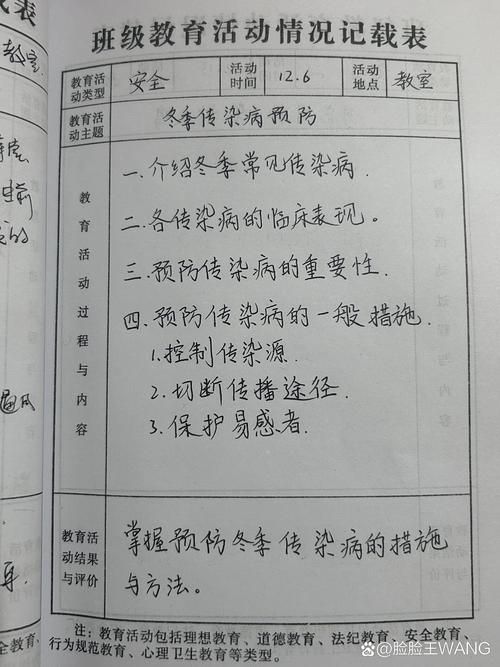 班级教育活动情况记载表
教育活动类型 安全 活动时间 12.6 活动地点 教室
教育活动主题 冬季传染病预防
教育活动过程与内容
一.介绍冬季常见传染病.
二.各传染病的临床表现。
三.预防传染病的重要性.
四.预防传染病的一般措施.
1.控制传染源.
2.切断传播途径.
3.保护易感者.
教育活动结果与评价
掌握预防冬季传染病的措施
与方法。
注:教育活动包括理想教育、道德教育、法纪教育、安全教育、
行为规范教育、心理卫生教育等类型。
载表
教室
通风
全教育、
@脸脸王WANG